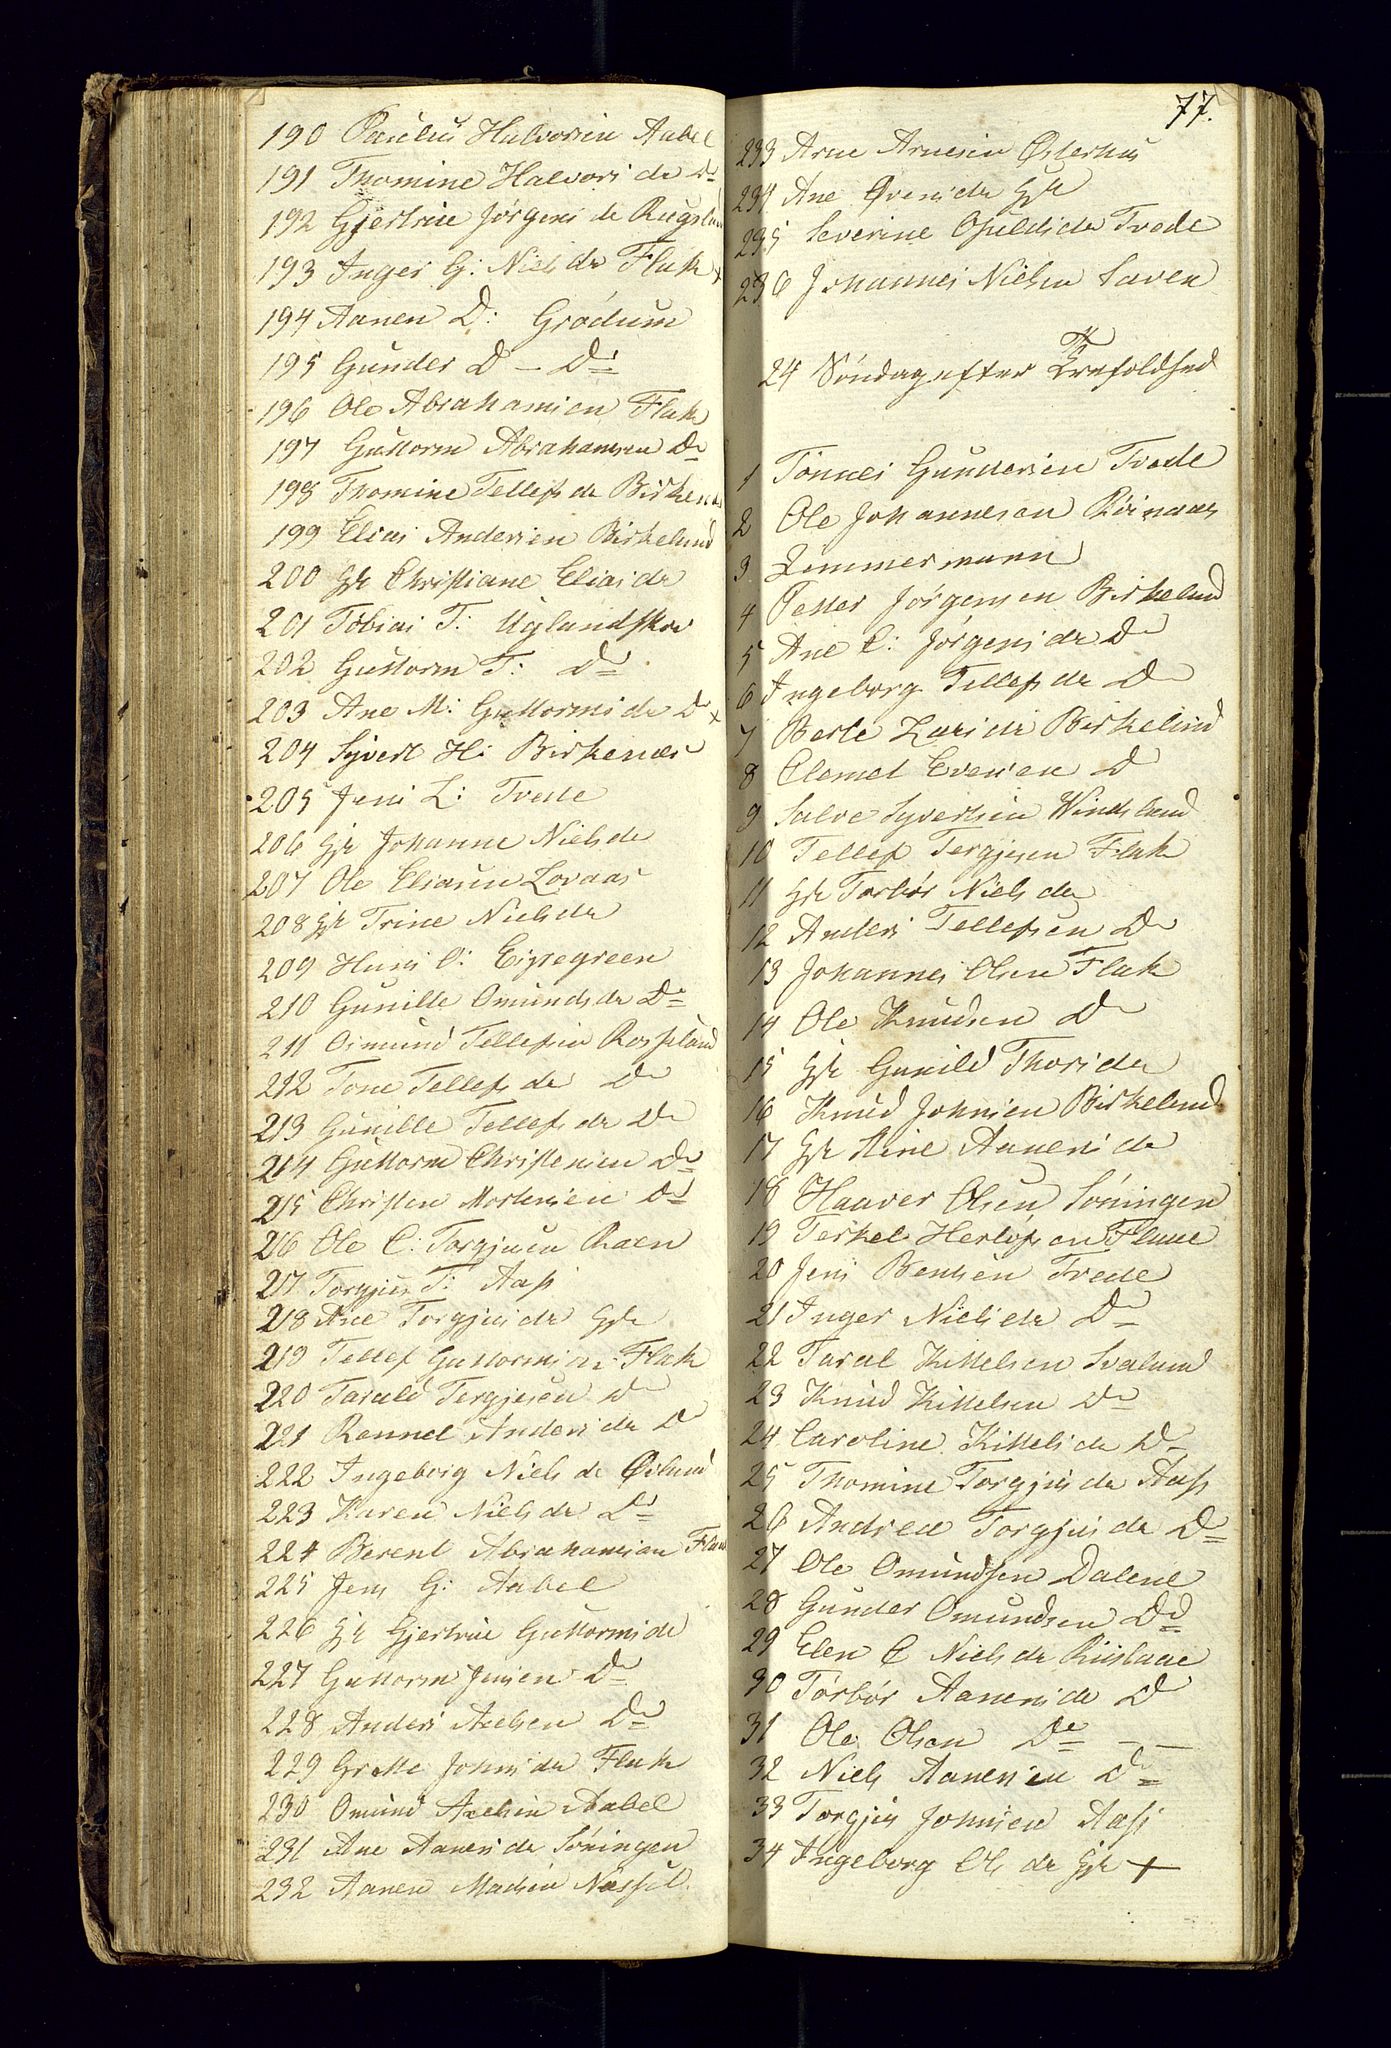 190 Paulus Halvorsen Aabel
191 Thomine Halvorsdr Do
192 Gjertrue Jørgensdr Rugslan
193 Inger G: Nielsdr Flak +
194 Aanen D: Grødum
195 Gunder D - Do
196 Ole Abrahamsen Flak
197 Guttorm Abrahamsen Do
198 Thomine Tellefsdr Birkenæs
199 Elias Andersen Birkelund
200 Gk Christiane Eliasdr
201 Tobias T: Uglandskov
202 Guttorm T: Do
203 Ane M: Guttormsdr Do +
204 Syvert H: Birkenæs
205 Jens L: Tvede
206 Gk Johanne Nielsdr
207 Ole Eliasen Lovaas
208 Gk Trine Nielsdr
209 Hans O: Eppegreen
210 Gunille Omundsdr Do
211 Osmund Tellefsen Rosseland
212 Tone Tellefsdr Do
213 Gunille Tellefsdr Do
214 Guttorm Christensen Do
215 Christen Mortensen Do
216 Ole C: Torgjusen Raen
217 Torgjus T: Aass
218 Ane Torgjusdr Gk
219 Tellef Guttormsen Flak
220 Tarald Tergjesen Do
221 Rannel Andersdr Do
222 Ingeborg Nielsdr Øslund
223 Karen Nielsdr Do
224 Berent Abrahamsen Flak
225 Jens G: Aabel
226 Gk Gjertrue Guttormsdr
227 Guttorm Jensen Do
228 Anders Axelsen Do
229 Grette Johnsdr Flak
230 Omund Axelsen Aabel
231 Ane Aanensdr Søningen
232 Aanen Madsen
77.
233 Arne Arnesen Østerhus
234 Ane Gk
235 Severine Tvede
236 Johannes Nielsen Saven
24 Søndag efter Trefoldhed
1 Tønnes Gundersen Tvede
2 Ole Johannesen
3 Zimmermann
4 Petter Jørgensen Birkelund
5 Ane C: Jørgensdr Do
6 Ingeborg Tellefsdr Do
7 Berte Larsdr Birkelund
8 Clemet Evensen Do
9 Salve Syvertsen Windsland
10 Tellef Tergjesen Flak
11 Gk Torbør Nielsdr
12 Anders Tellefsen Do
13 Johannes Olsen Flak
14 Ole Knudsen Do
15 Gk Gunild Thorsdr
16 Knud Johnsen Birkelund
17 Gk Stine Aanensdr
18 Haaver Olsen Søningen
19 Terkel Herlofsen Flaae
20 Jens Bentsen Tvede
21 Inger Nielsdr Do
22 Taral Kittelsen Svalund
23 Knud Kittelsen Do
24 Caroline Kittelsdr Do
25 Thomine Torgjusdr Aass
26 Andrea Torgjusdr Do
27 Ole Omundsen Dalene
28 Gunder Omundsen Do
29 Elen C Nielsdr Riislaae
30 Torbør Aanensdr Do
31 Ole Olsen Do - -
32 Niels Aanensen Do
33 Torgjus Johnsen Aass
34 Ingeborg Olsdr Gk +